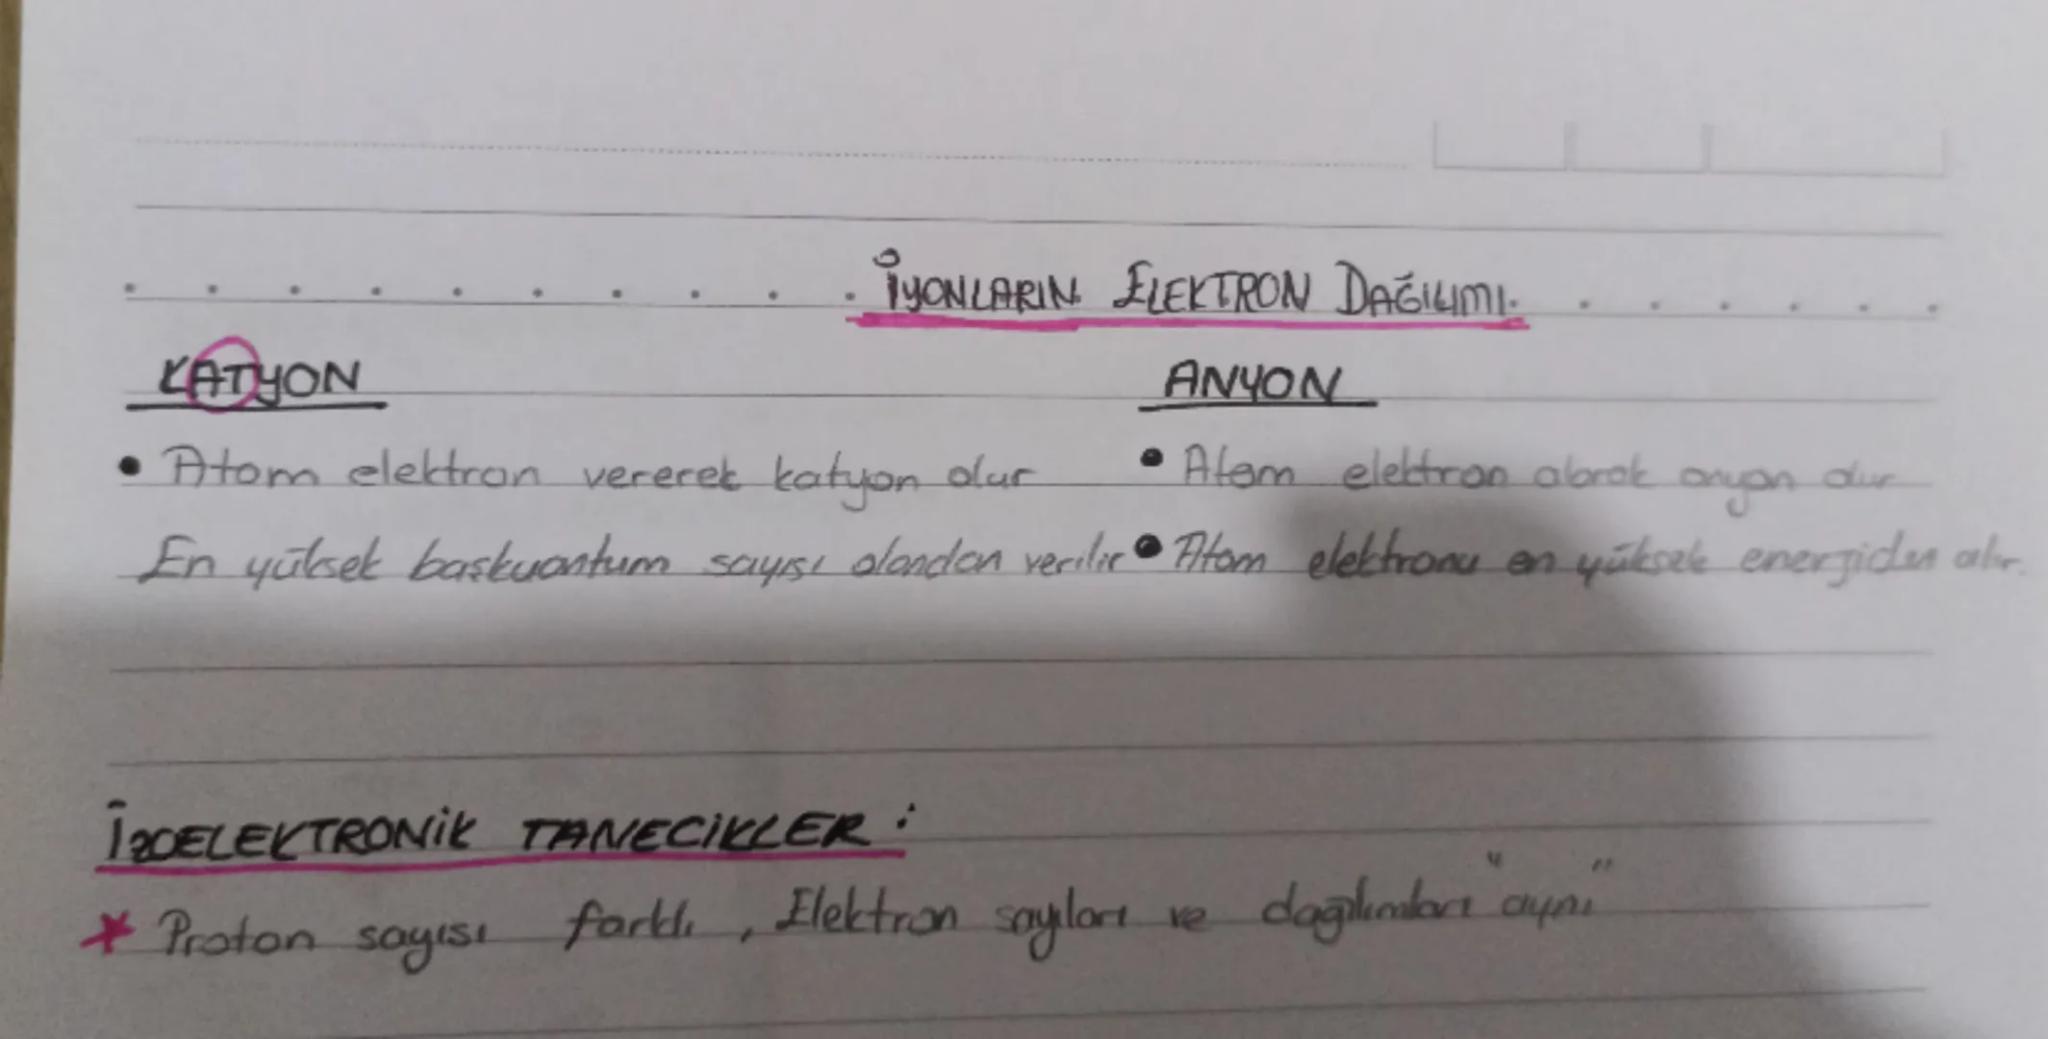 İYONLARIN ELEKTRON DAĞILIMI
KATYON
• Atom elektron vererek katyon olur
En yüksek başkuantum sayısı olandan verilir
ANYON
• Atom elektron alarak anyon olur
• Atom elektronu en yüksek energiden alır.
İZOELEKTRONİK TANECİKLER :
* Proton sayısı farklı, Elektron sayıları ve dağılımları "aynı"